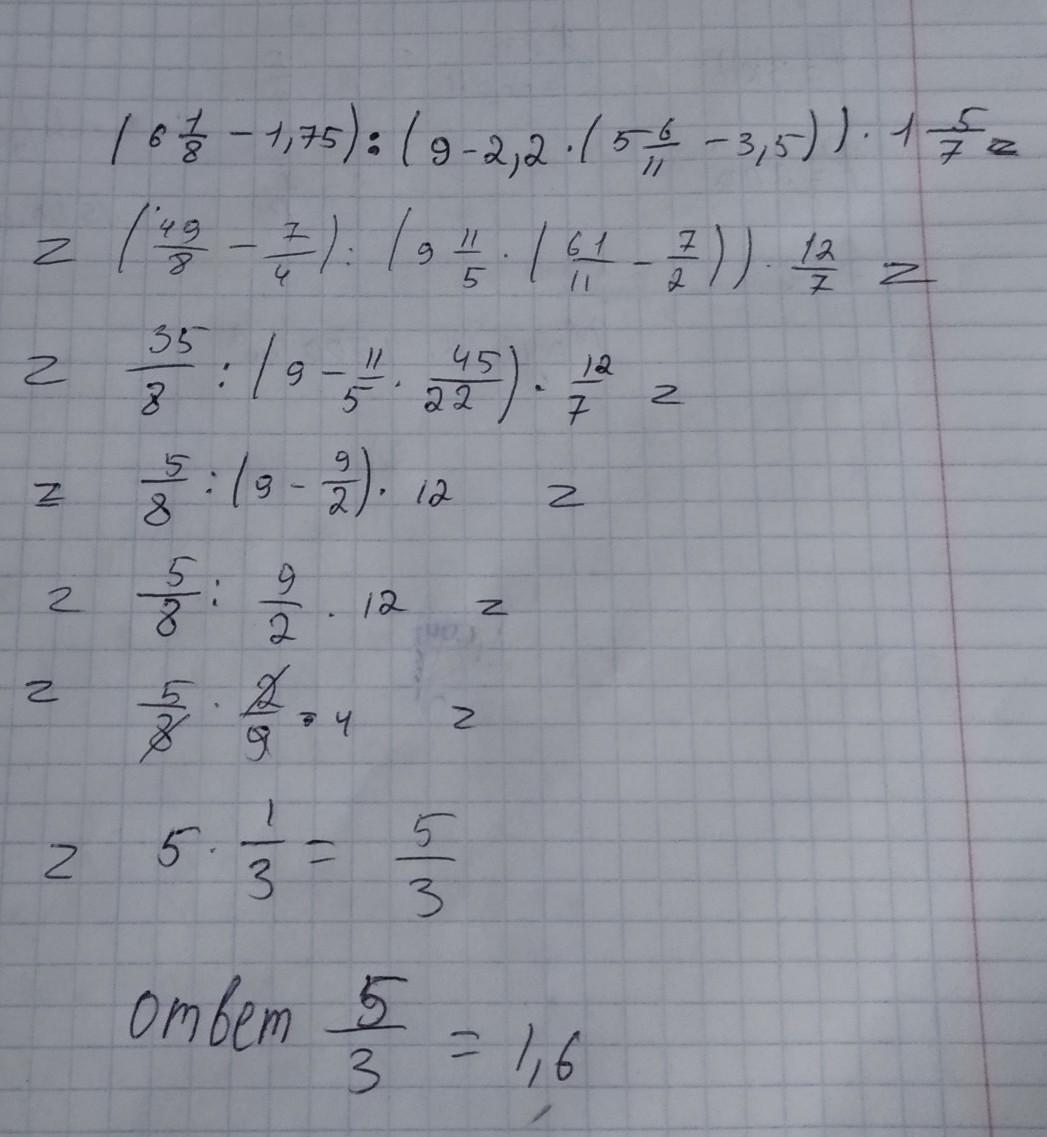 (6 1/8 - 1,75) : (9 - 2,2 · (5 6/11 - 3,5)) · 1 5/7 =
= (49/8 - 7/4) : (9 11/5 · (61/11 - 7/2)) · 12/7 =
= 35/8 : (9 - 11/5 · 45/22) · 12/7 =
= 5/8 : (9 - 9/2) · 12 =
= 5/8 : 9/2 · 12 =
= 5/8 · 2/9 · 4 =
= 5 · 1/3 = 5/3
ответ 5/3 = 1,6